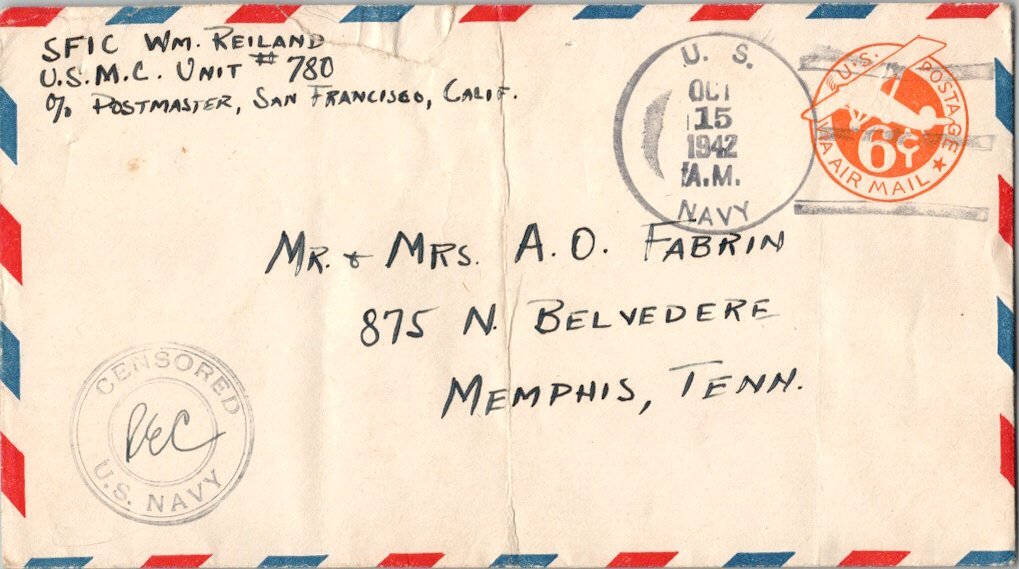 SF1C WM. REILAND
U.S.M.C. UNIT # 780
c/o POSTMASTER, SAN FRANCISCO, CALIF.
U. S.
OCT
15
1942
A.M.
NAVY
U.S. POSTAGE
6¢
VIA AIR MAIL
MR. & MRS. A. O. FABRIN
875 N. BELVEDERE
MEMPHIS, TENN.
CENSORED
U.S. NAVY